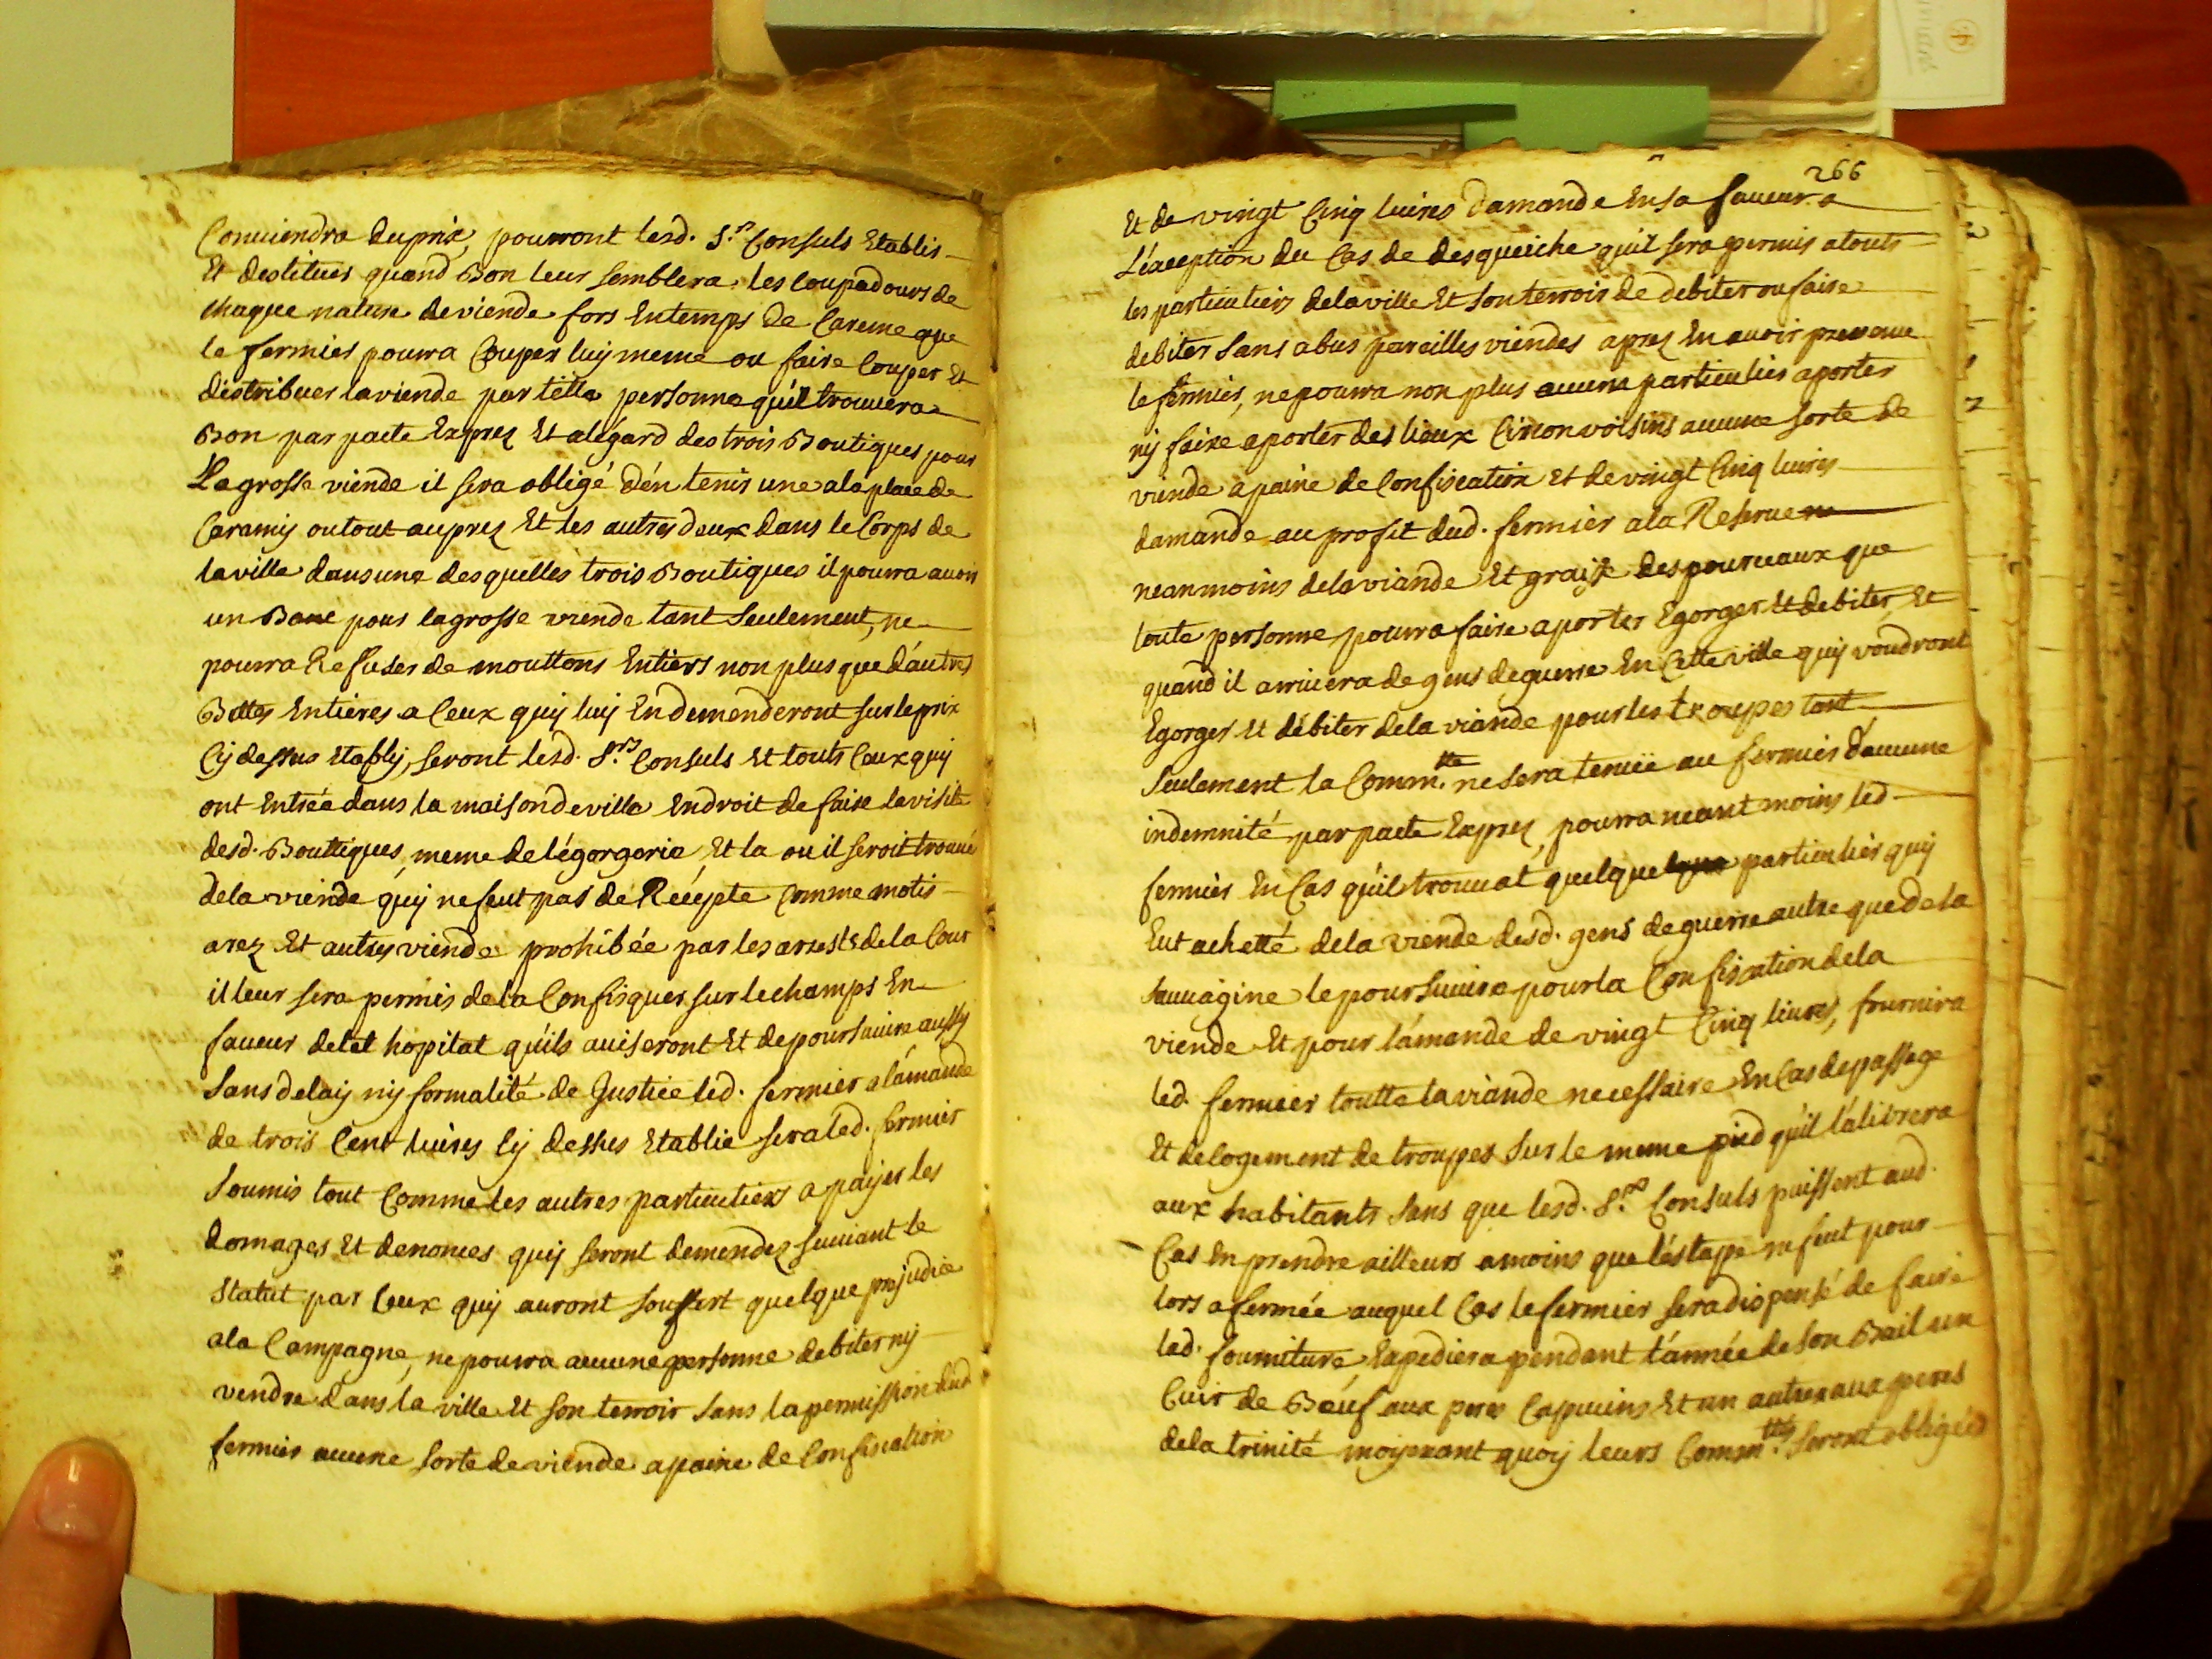 Conviendra du prix, pourront lesd. Srs Consuls Etablir
Et destituer quand Bon leur semblera les Coupadours de
chaque nature de viende fors En temps de Careme que
le fermier pourra Couper luy meme ou faire Couper Et
distribuer la viende par telle personne qu'il trouvera
Bon par pacte Exprez Et a légard des trois Boutiques pour
La grosse viende il sera obligé d'én tenir une a la place de
Caramy ou tout auprez Et les autres deux dans le Corps de
la ville dans une des quelles trois Boutiques il pourra avoir
un Banc pour la grosse viende tant seulement, ne
pourra Refuser de mouttons Entiers non plus que d'autres
Bettes Entieres a Ceux quy luy En demenderont sur le prix
Cy dessus Etably, seront lesd. Srs Consuls Et touts Ceux quy
ont Entrée dans la maison de ville En droit de faire la visite
desd. Bouttiques, meme de légorgerie, Et la ou il seroit trouvé
de la viende quy ne feut pas de Récepte Comme motis
arez Et autres viende prohibée par les arrests de la Cour
il leur sera permis de la Confisquer sur le champs En
faveur de tel hopital qu'ils aviseront Et de poursuivre aussy
sans delay ny formalité de Justice led. fermier a l'amande
de trois Cent livres Cy dessus Etablie sera led. fermier
soumis tout Comme les autres particuliers a payer les
domages Et denonces quy seront demendez suivant le
statut par Ceux quy auront souffert quelque prejudice
a la Campagne, ne pourra aucune personne debiter ny
vendre dans la ville Et son terroir sans la permission dud.
fermier aucune sorte de viende a paine de Confiscation
266
Et de vingt Cinq livres damande En sa faveur a
L'éxception du Cas de desqueiche qu'il sera permis a touts
les particuliers de la ville Et son terroir de debiter ou faire
debiter sans abus pareilles viendes aprez En avoir prevenu
le fermier, ne pourra non plus aucune particulier aporter
ny faire aporter des lieux Circonvoisins aucune sorte de
viende a paine de Confiscation Et de vingt Cinq livres
damande au profit dud. fermier a la Reserve
neanmoins de la viande Et graise des pourceaux que
toute personne pourra faire aporter Egorger Et debiter, Et
quand il arrivera de gens de guerre En Cette ville quy voudront
Egorger Et débiter de la viande pour les troupes tant
seulement la Commtte ne sera tenüe au fermier d'aucune
indemnité par pacte Exprez, pourra neant moins led.
fermier En Cas qu'il trouvat quelque particulier quy
Eut achetté de la viende desd. gens de guerre autre que de la
sauvagine le poursuivre pour la Confiscation de la
viende Et pour l'amande de vingt Cinq livres, fournira
led. fermier toutte la viande necessaire En Cas de passage
Et de logement de troupes sur le meme pied qu'il la livrera
aux habitants sans que lesd. Srs Consuls puissent aud.
Cas En prendre ailleurs a moins que l'éstape ne feut pour
lors afermée auquel Cas le fermier sera dispensé de faire
lad. fourniture, Expediera pendant l'année de son Bail un
Cuir de Bœuf aux peres Capucins Et un autre aux peres
de la trinité moyenant quoy leurs Commttés seront obligées